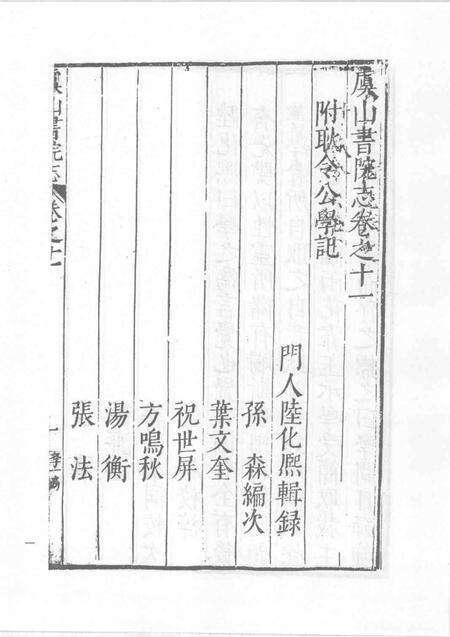 虞山書院志卷之十一
附耿令公學記
門人陸化熙輯録
孫森編次
葉文奎
祝世屏
方鳴秋
湯衡
張法
虞山書院志 卷之十一 一